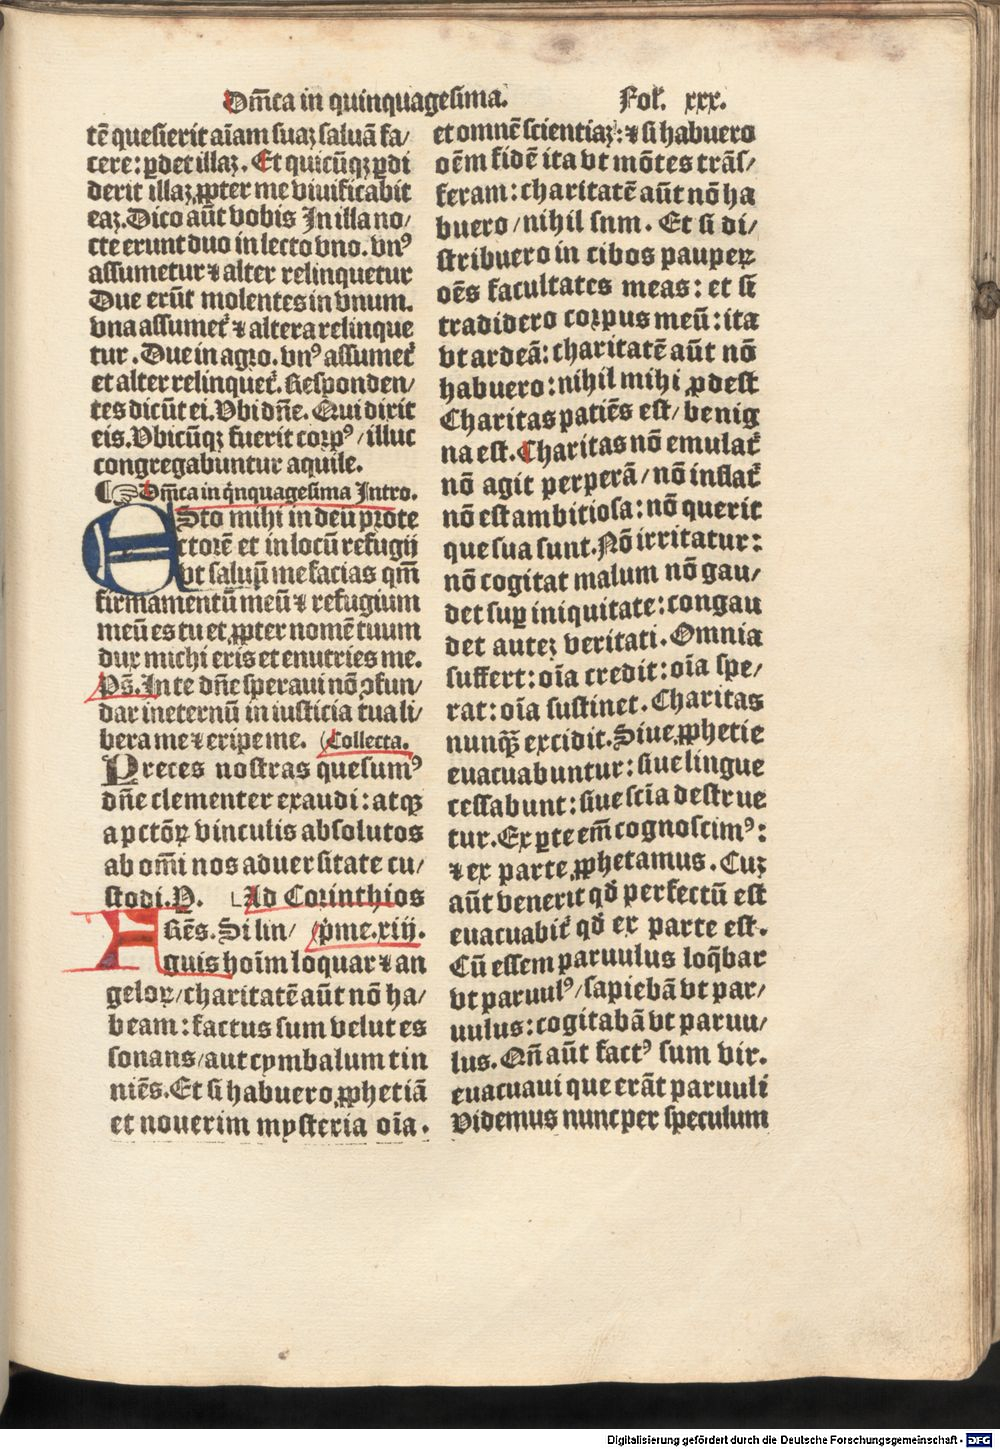 Dm̄ca in quinquagesima. Fol'. xxx.
tē quesierit aīam suaʒ saluā fa/
cere: ꝑdet illaʒ. Et quicūqʒ ꝑdi
derit illaʒ ꝓpter me viuificabit
eaʒ. Dico aūt vobis In illa no/
cte erunt duo in lecto vno. vnꝰ
assumetur ⁊ alter relinquetur
Due erūt molentes in vnum.
vna assumet᷑ ⁊ altera relinque
tur. Due in agro. vnꝰ assumet᷑
et alter relinquet᷑. Responden/
tes dicūt ei. Vbi dn̄e. Qui dixit
eis. Vbicūqʒ fuerit corpꝰ / illuc
congregabuntur aquile.
¶ ☞ Dm̄ca in qͥnquagesima Intro.
ESto mihi in deū prote
ctorē et in locū refugij
vt saluū me facias qm̄
firmamentū meū ⁊ refugium
meū es tu et ꝓpter nomē tuum
dux michi eris et enutries me.
Ps̄. In te dn̄e speraui nō ꝯfun/
dar in eternū in iusticia tua li/
bera me ⁊ eripe me. Collecta.
PReces nostras quesumꝰ
dn̄e clementer exaudi: atqʒ
a pctōꝝ vinculis absolutos
ab om̄i nos aduersitate cu/
stodi. P. Ad Corinthios
FRēs. Si lin/ p̄me. xiij.
guis hoīm loquar ⁊ an
geloꝝ / charitatē aūt nō ha/
beam: factus sum velut es
sonans / aut cymbalum tin
niēs. Et si habuero ꝓphetiā
et nouerim mysteria oīa.
et omnē scientiaʒ: ⁊ si habuero
oēm fidē ita vt mōtes trāſ/
feram: charitatē aūt nō ha
buero / nihil snm. Et si di/
stribuero in cibos pauperꝝ
oēs facultates meas: et si
tradidero corpus meū: ita
vt ardeā: charitatē aūt nō
habuero: nihil mihi ꝓdest
Charitas patiēs est / benig
na est. Charitas nō emulat᷑
nō agit perperā / nō inflat᷑
nō est ambitiosa: nō querit
que sua sunt. Nō irritatur:
nō cogitat malum nō gau/
det suꝑ iniquitate: congau
det auteʒ veritati. Omnia
suffert: oīa credit: oīa spe/
rat: oīa sustinet. Charitas
nunqʒ̄ excidit. Siue ꝓphetie
euacuabuntur: siue lingue
cessabunt: siue scīa destrue
tur. Ex ꝑte em̄ cognoscimꝰ:
⁊ ex parte ꝓphetamus. Cuʒ
aūt venerit qđ perfectū est
euacuabit᷑ qđ ex parte est.
Cū essem paruulus loq̄bar
vt paruulꝰ / sapiebā vt par/
uulus: cogitabā vt paruu/
lus. Qn̄ aūt factꝰ sum vir.
euacuaui que erāt paruuli
Videmus nunc per speculum
Digitalisierung gefördert durch die Deutsche Forschungsgemeinschaft - DFG